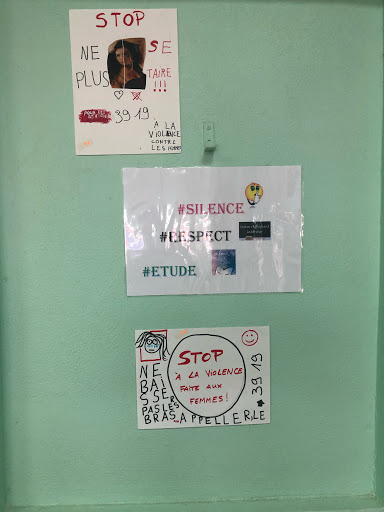 STOP
NE SE
PLUS TAIRE
!!!
39 19
À LA
VIOLENCE
CONTRE
LES FEMMES
#SILENCE
#RESPECT
#ETUDE
STOP
À LA VIOLENCE
FAITE AUX
FEMMES!
NE
BAI
SSER
PAS LES
BRAS APPELLER LE
39 19